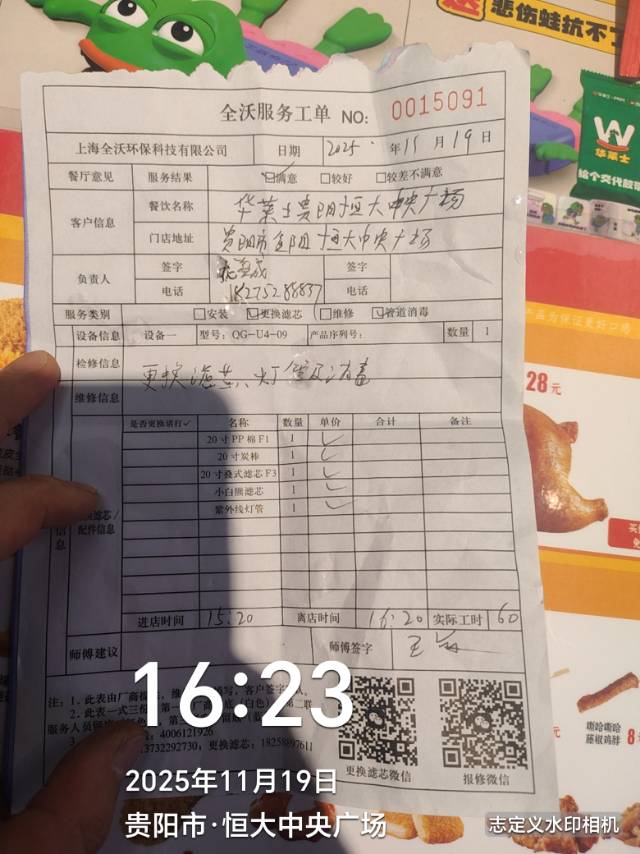 悲伤蛙抗不
华莱士
给个交代
全沃服务工单 NO: 0015091
上海全沃环保科技有限公司 日期 2025 年 11 月 19 日
餐厅意见 服务结果 ☑满意 □较好 □较差不满意
客户信息 餐饮名称 华莱士贵阳恒大中央广场
门店地址 贵阳市 恒大中央广场
负责人 签字 签字
电话 18275288837 电话
服务类别 □安装 ☑更换滤芯 □维修 ☑管道消毒
设备信息 设备一 型号: QG-U4-09 产品序列号: 数量 1
检修信息
更换滤芯、灯管及消毒
维修信息
是否更换请打✓ 名称 数量 单价 合计 备注
20寸PP棉F1 1 ✓
20寸炭棒 1 ✓
20寸叠式滤芯F3 1 ✓
小白熊滤芯 1 ✓
紫外线灯管 1 ✓
滤芯/
配件信息
息
进店时间 15:20 离店时间 16:20 实际工时 60
师傅建议 师傅签字 王
注: 1. 此表由厂商提 维 写, 客户签字
2. 此表一式三份 第一 白色 第二联
服务人员 第三
4006121926
13732292730, 更换滤芯: 18258897611
更换滤芯微信 报修微信
产品为保证更好口感
28元
嘟哈嘟哈
藤椒鸡脖 8
16:23
2025年11月19日
贵阳市·恒大中央广场
志定义水印相机